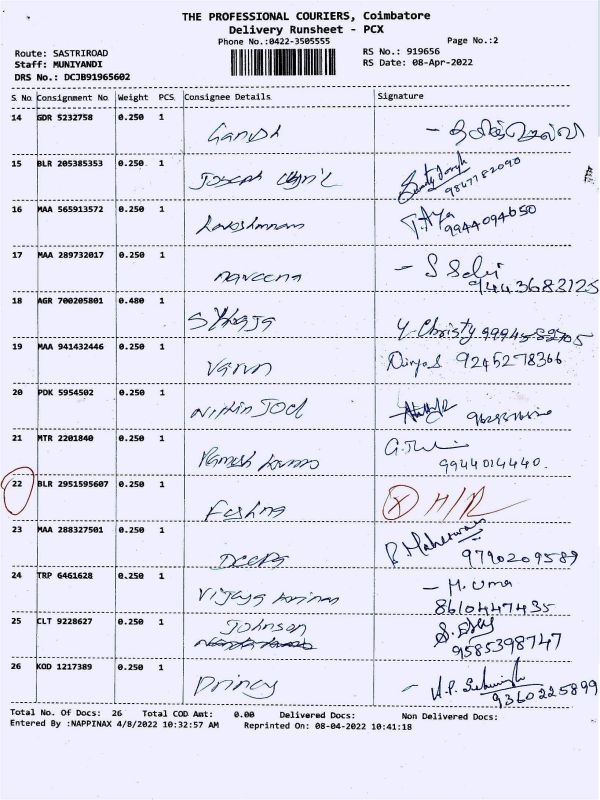 THE PROFESSIONAL COURIERS, Coimbatore
Delivery Runsheet - PCX
Phone No.:0422-3505555 Page No.:2
Route: SASTRIROAD RS No.: 919656
Staff: MUNIYANDI RS Date: 08-Apr-2022
DRS No.: DCJB91965602
S No Consignment No Weight PCS Consignee Details Signature
14 GDR 5232758 0.250 1 Ganesh
15 BLR 205385353 0.250 1 Joseph 9847782090
16 MAA 565913572 0.250 1 9944094650
17 MAA 289732017 0.250 1 naveena - S Selvi
9443683125
18 AGR 700205801 0.480 1 Y. Christy 9994582705
19 MAA 941432446 0.250 1 Varun Divya S 9245278366
20 PDK 5954502 0.250 1 Nithin Joel
21 MTR 2201840 0.250 1 Ramesh
9944014440.
22 BLR 2951595607 0.250 1
23 MAA 288327501 0.250 1 Deepa P. Maheswari
9790209589
24 TRP 6461628 0.250 1 Vijaya - M. Uma
8610447435
25 CLT 9228627 0.250 1 Johnson
9585398747
26 KOD 1217389 0.250 1 Princy
9360225899
Total No. Of Docs: 26 Total COD Amt: 0.00 Delivered Docs: Non Delivered Docs:
Entered By :NAPPINAX 4/8/2022 10:32:57 AM Reprinted On: 08-04-2022 10:41:18